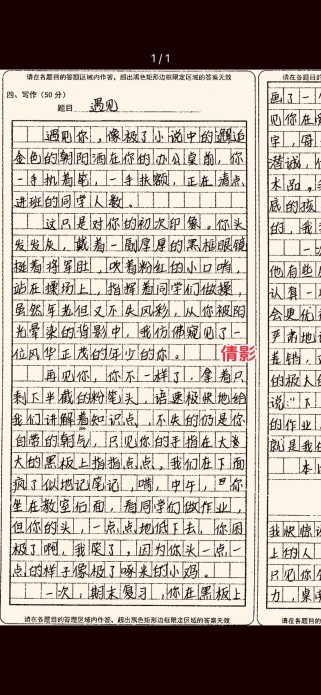 1/1
请在各题目的答题区域内作答，超出黑色矩形边框限定区域的答案无效
四、写作（50分）
题目 遇见
遇见你，像极了小说中的邂逅
金色的朝阳洒在你的办公桌前，你
一手执着笔，一手扶额，正在清点
进班的同学人数。
这只是对你的初次印象。你头
发发灰，戴着一副厚厚的黑框眼镜
挺着将军肚，吹着粉红的小口哨，
站在操场上，指挥着同学们做操，
虽然年老但又不失风彩，从你被阳
光晕染的背影中，我仿佛窥见了一
位风华正茂的年少的你。
倩影
再见你，你不一样了，拿着只
剩下半截的粉笔头，语速极快地给
我们讲解着知识点，不失的仍是你
自带的朝气，只见你的手指在大
大的黑板上指指点点，我们在下面
疯了似地记笔记，嘀，中午，你
坐在教室后面，看同学们做作业，
但你的头，一点点地低下去，你困
极了啊，我笑了，因为你头一点一
点的样子像极了啄米的小鸡。
一次，期末复习，你在黑板上
请在各题目的答题区域内作答，超出黑色矩形边框限定区域的答案无效
请在各题目的
画了一
见你在
字，每
潜诚，
木品。
底的孩
的，我
一次
他有些
认真一
会更优
严肃地
差错，
的极人
说"下
的作业
就是我
我惊讶
上的人
只见你
力，桌
请在各题目的